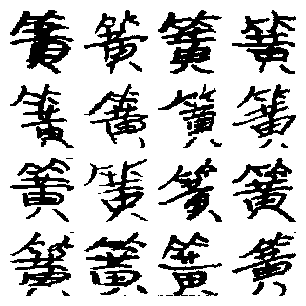 簧簧簧簧
簧簧簧簧
簧簧簧簧
簧簧簧簧